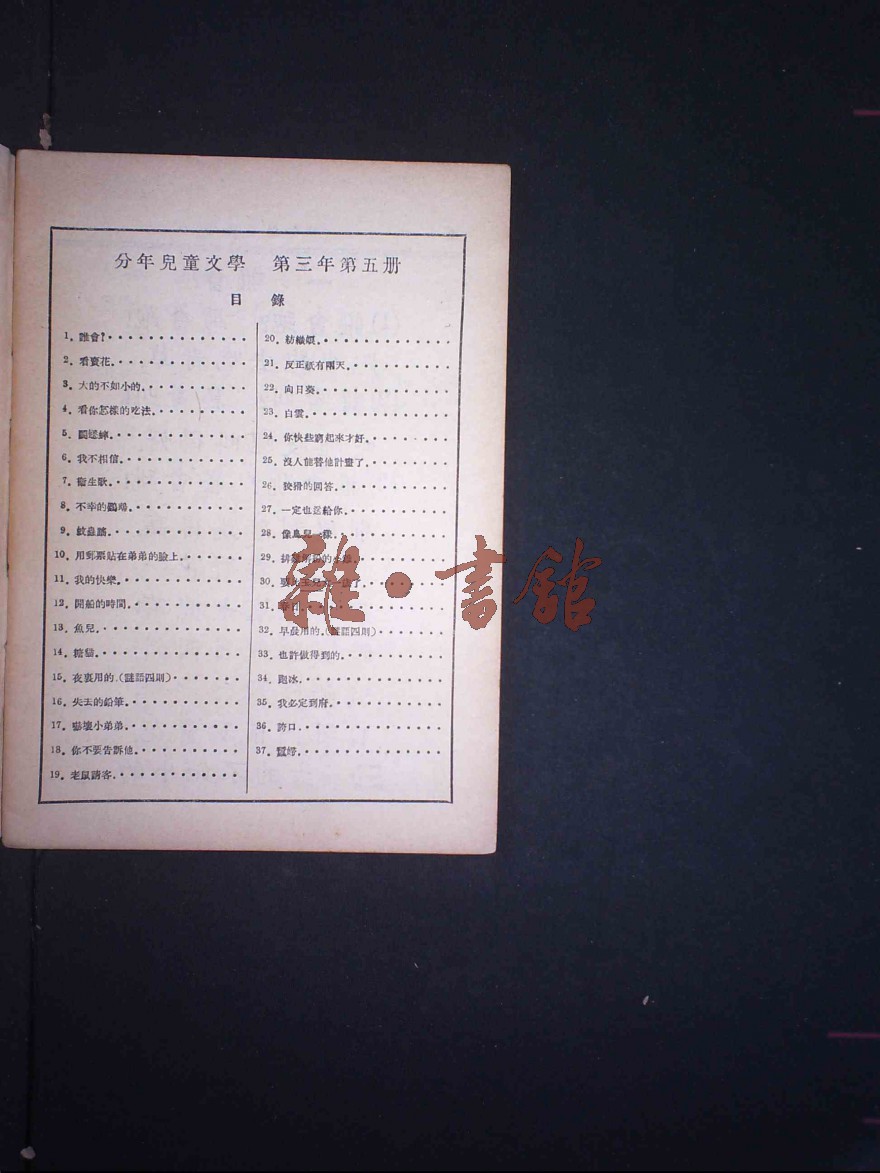 分年兒童文學 第三年第五册
目 錄
1. 誰會?
2. 看賣花.
3. 大的不如小的.
4. 看你怎樣的吃法.
5. 鬬蟋蟀.
6. 我不相信.
7. 衞生歌.
8. 不幸的鸚鵡.
9. 蚊蟲
10. 用郵票貼在弟弟的臉上.
11. 我的快樂.
12. 開船的時間.
13. 魚兒.
14. 糖
15. 夜裏用的.(謎語四則)
16. 失去的鉛筆.
17. 嚇壞小弟弟.
18. 你不要告訴他.
19. 老鼠請客.
20. 紡織娘.
21. 反正祇有兩天.
22. 向日葵.
23. 白雲.
24. 你快些窮起來才好.
25. 沒人能替他計畫了.
26. 狡猾的回答.
27. 一定也送給你.
28. 像鳥兒一樣.
29.
30.
31.
32. 早晨用的.(謎語四則)
33. 也許做得到的.
34. 跑冰.
35. 我必定到府.
36. 誇口.
37. 蠶
雜·書館